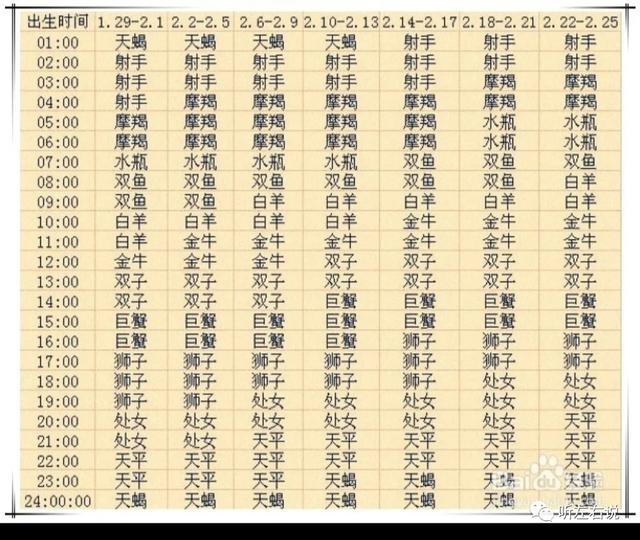 出生时间 1.29-2.1 2.2-2.5 2.6-2.9 2.10-2.13 2.14-2.17 2.18-2.21 2.22-2.25
01:00 天蝎 天蝎 天蝎 天蝎 射手 射手 射手
02:00 射手 射手 射手 射手 射手 射手 射手
03:00 射手 射手 射手 射手 射手 摩羯 摩羯
04:00 射手 摩羯 摩羯 摩羯 摩羯 摩羯 摩羯
05:00 摩羯 摩羯 摩羯 摩羯 摩羯 水瓶 水瓶
06:00 摩羯 摩羯 摩羯 摩羯 摩羯 水瓶 水瓶
07:00 水瓶 水瓶 水瓶 水瓶 双鱼 双鱼 双鱼
08:00 双鱼 双鱼 双鱼 双鱼 双鱼 双鱼 白羊
09:00 双鱼 双鱼 白羊 白羊 白羊 白羊 白羊
10:00 白羊 白羊 白羊 白羊 金牛 金牛 金牛
11:00 白羊 金牛 金牛 金牛 金牛 金牛 金牛
12:00 金牛 金牛 金牛 双子 双子 双子 双子
13:00 双子 双子 双子 双子 双子 双子 双子
14:00 双子 双子 双子 巨蟹 巨蟹 巨蟹 巨蟹
15:00 巨蟹 巨蟹 巨蟹 巨蟹 巨蟹 巨蟹 巨蟹
16:00 巨蟹 巨蟹 巨蟹 巨蟹 狮子 狮子 狮子
17:00 狮子 狮子 狮子 狮子 狮子 狮子 狮子
18:00 狮子 狮子 狮子 狮子 狮子 处女 处女
19:00 狮子 狮子 处女 处女 处女 处女 处女
20:00 处女 处女 处女 处女 处女 处女 天平
21:00 处女 处女 天平 天平 天平 天平 天平
22:00 天平 天平 天平 天平 天平 天平 天平
23:00 天平 天平 天平 天蝎 天蝎 天蝎 天蝎
24:00:00 天蝎 天蝎 天蝎 天蝎 天蝎 天蝎 天蝎
Bai 经验
听左右说